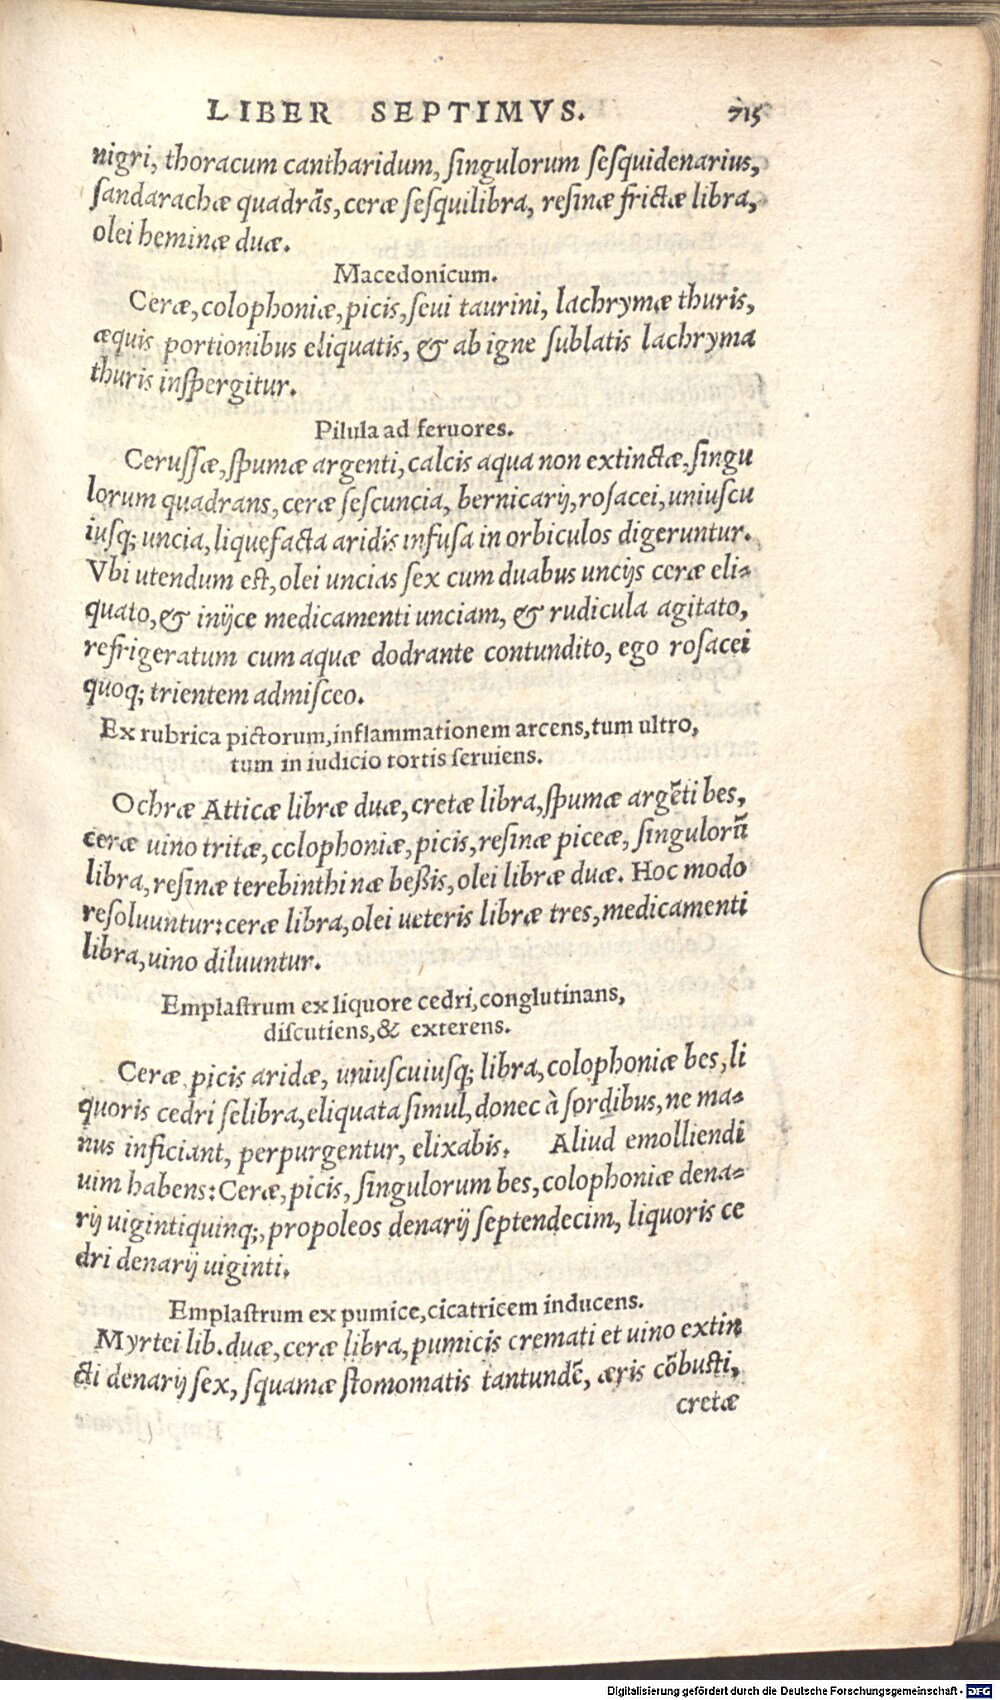 LIBER SEPTIMVS. 715
nigri, thoracum cantharidum, singulorum sesquidenarius,
sandarachæ quadrãs, ceræ sesquilibra, resinæ frictæ libra,
olei heminæ duæ.
Macedonicum.
Ceræ, colophoniæ, picis, seui taurini, lachrymæ thuris,
æquis portionibus eliquatis, & ab igne sublatis lachryma
thuris inspergitur.
Pilula ad feruores.
Cerussæ, spumæ argenti, calcis aqua non extinctæ, singu
lorum quadrans, ceræ sescuncia, bernicarij, rosacei, uniuscu
iusq; uncia, liquefacta aridis infusa in orbiculos digeruntur.
Vbi utendum est, olei uncias sex cum duabus uncijs ceræ eli-
quato, & inijce medicamenti unciam, & rudicula agitato,
refrigeratum cum aquæ dodrante contundito, ego rosacei
quoq; trientem admisceo.
Ex rubrica pictorum, inflammationem arcens, tum ultro,
tum in iudicio tortis seruiens.
Ochræ Atticæ libræ duæ, cretæ libra, spumæ argẽti bes,
ceræ uino tritæ, colophoniæ, picis, resinæ piceæ, singulorũ
libra, resinæ terebinthinæ beßis, olei libræ duæ. Hoc modo
resoluuntur: ceræ libra, olei ueteris libræ tres, medicamenti
libra, uino diluuntur.
Emplastrum ex liquore cedri, conglutinans,
discutiens, & exterens.
Ceræ, picis aridæ, uniuscuiusq; libra, colophoniæ bes, li
quoris cedri selibra, eliquata simul, donec à sordibus, ne ma-
nus inficiant, perpurgentur, elixabis. Aliud emolliendi
uim habens: Ceræ, picis, singulorum bes, colophoniæ dena-
rij uigintiquinq;, propoleos denarij septendecim, liquoris ce
dri denarij uiginti.
Emplastrum ex pumice, cicatricem inducens.
Myrtei lib. duæ, ceræ libra, pumicis cremati et uino extin
cti denarij sex, squamæ stomomatis tantundẽ, æris cõbusti,
cretæ
Digitalisierung gefördert durch die Deutsche Forschungsgemeinschaft - DFG